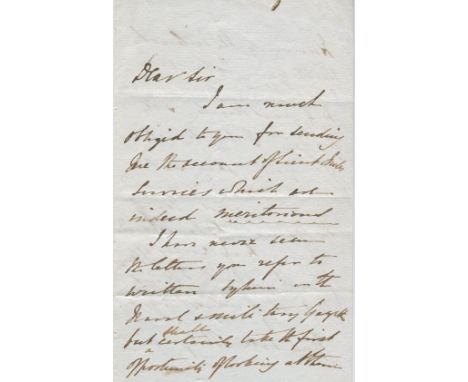 Dear Sir
I am much
obliged to you for sending
me the account of Lieut
Services which are
indeed meritorious
I have never seen
the letters you refer to
written by him in the
Naval & Military Gazette
but shall certainly take the first
opportunity of looking at them